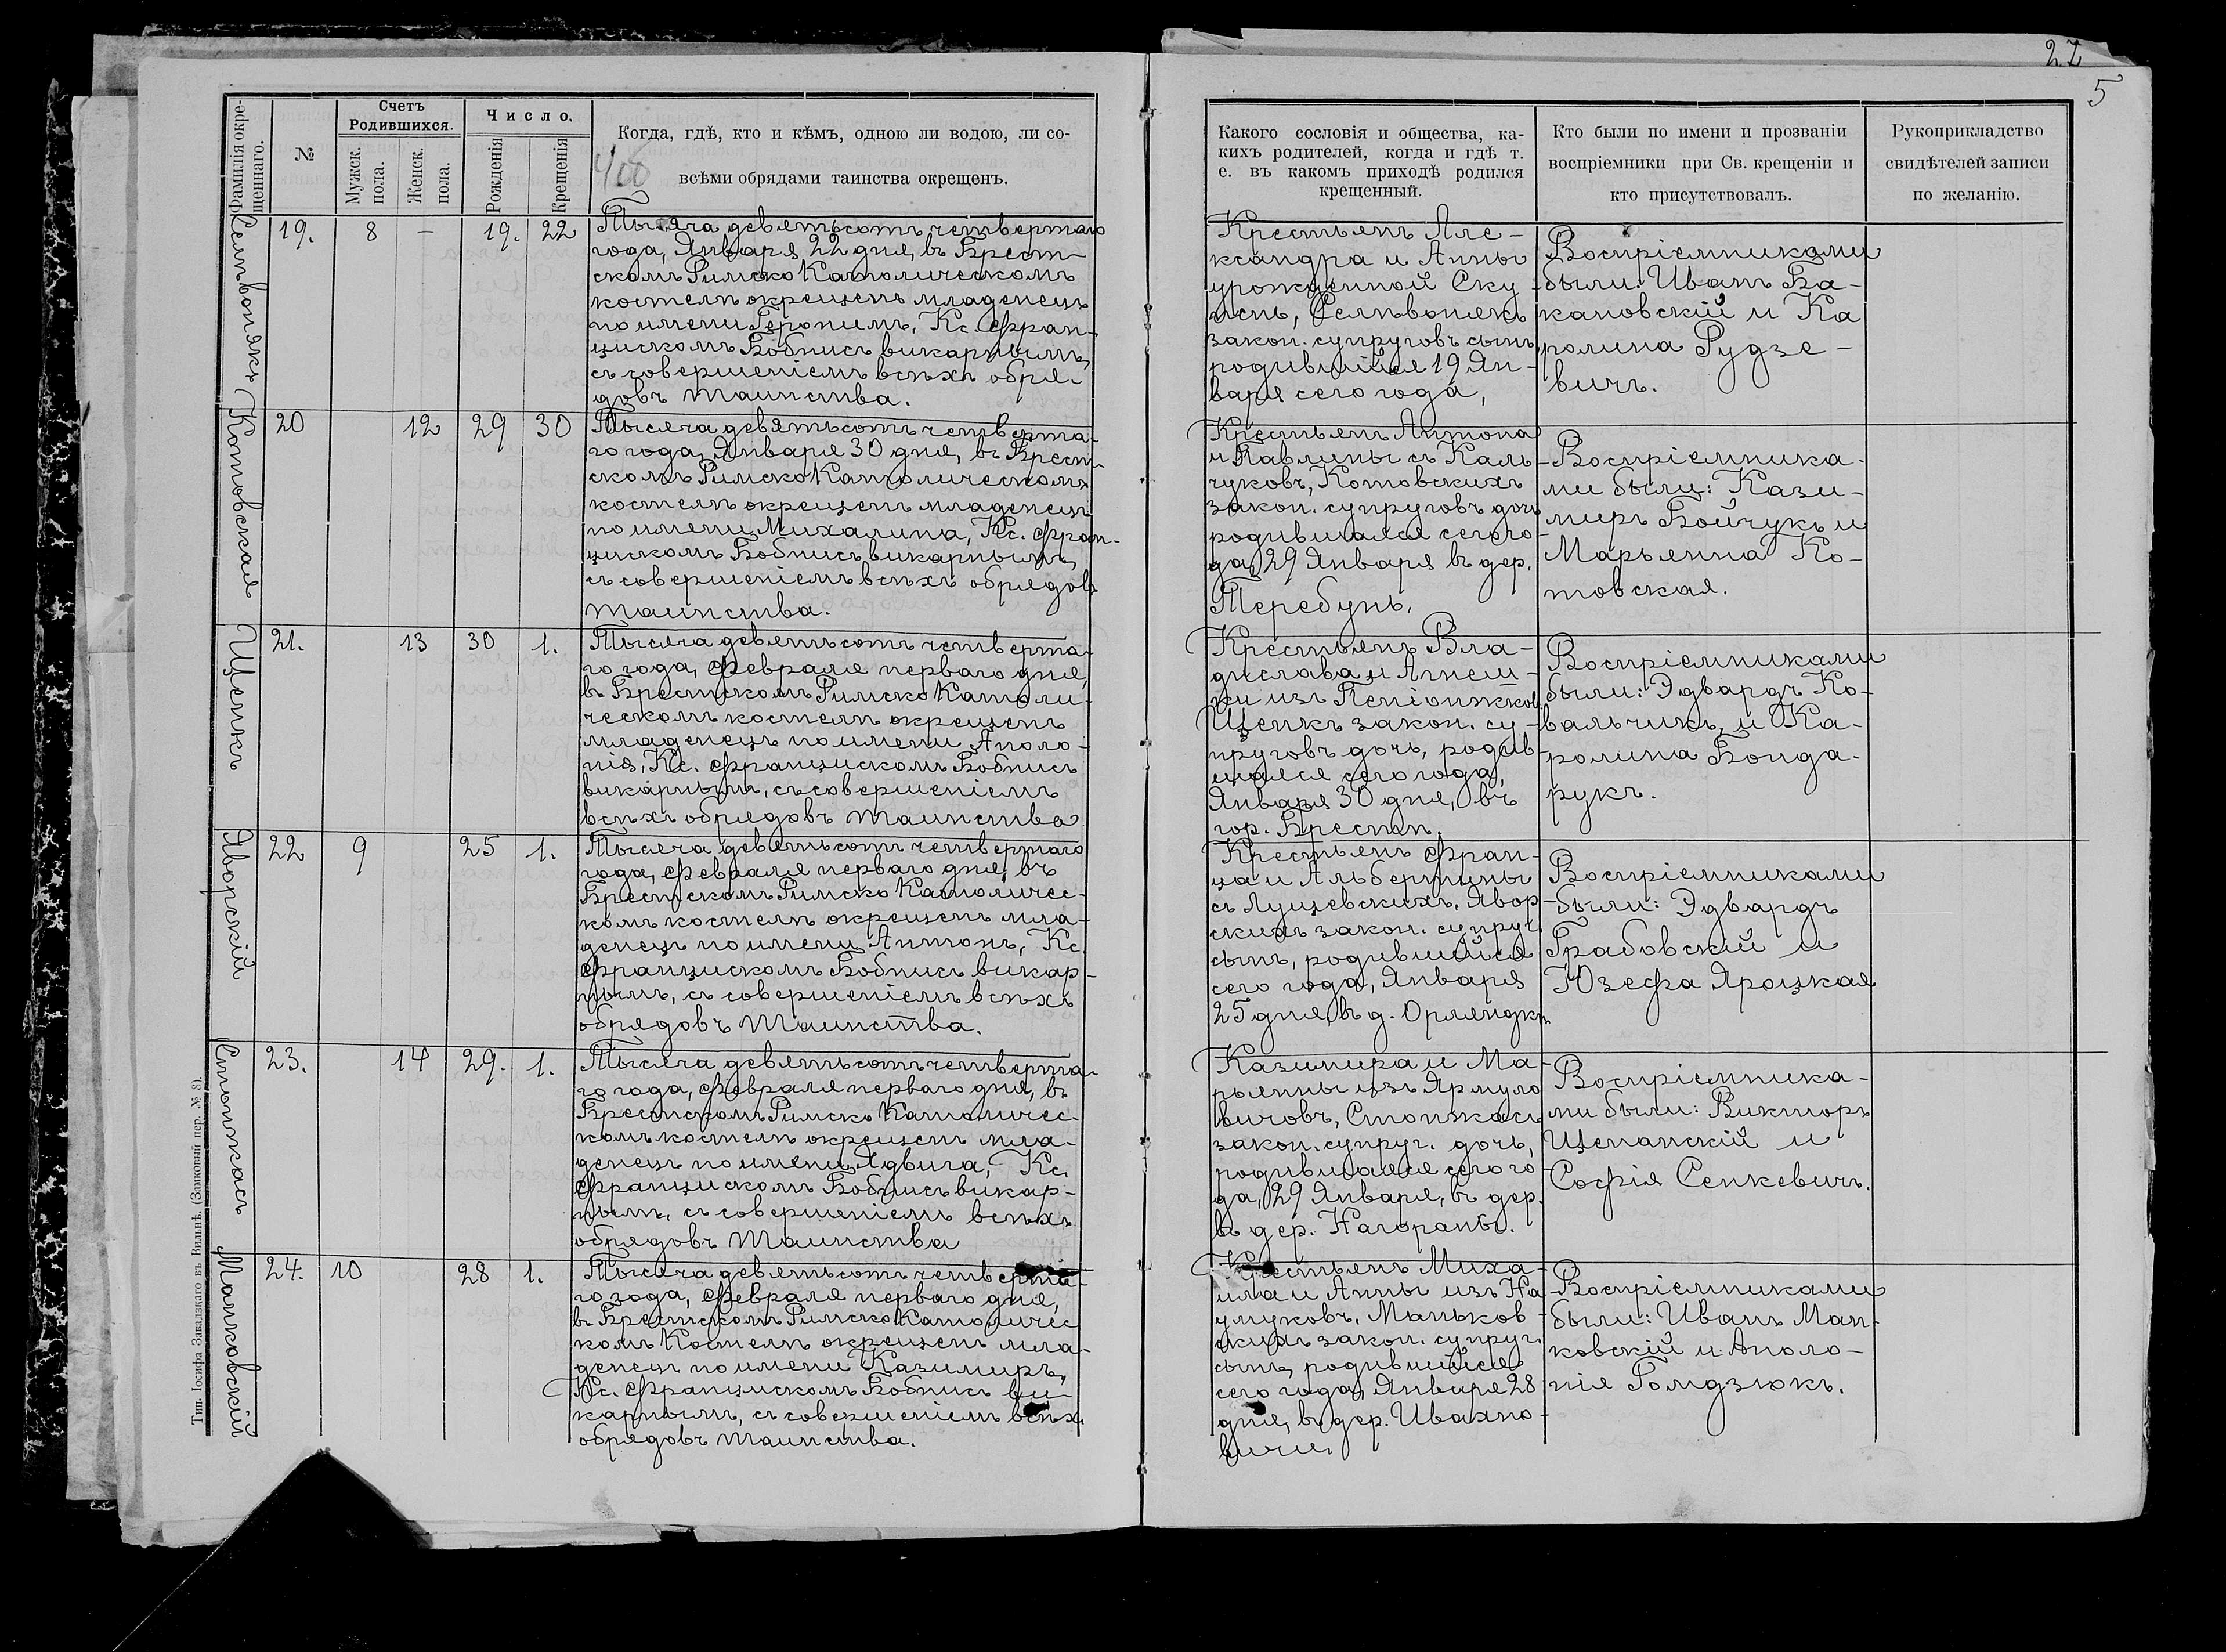 27
5
Фамилія окре-
щеннаго.
№
Счетъ
Родившихся.
Мужск.
пола.
Женск.
пола.
Число.
Рожденія
Крещенія
Когда, гдѣ, кто и кѣмъ, одною ли водою, ли со-
всѣми обрядами таинства окрещенъ.
Какого сословія и общества, ка-
кихъ родителей, когда и гдѣ т.
е. въ какомъ приходѣ родился
крещенный.
Кто были по имени и прозванію
воспріемники при Св. крещеніи и
кто присутствовалъ.
Рукоприкладство
свидѣтелей записи
по желанію.
Сельвонякъ
19. 8 — 19. 22
Тысяча девятьсотъ четвертаго
года, Января 22 дня, въ Брест-
скомъ Римско Католическомъ
костелѣ окрещенъ младенецъ
по имени Геронимъ, Кс. Фран-
цискомъ Бобнисъ викарнымъ,
съ совершеніемъ всѣхъ обря-
довъ таинства.
Крестьянъ Але-
ксандра и Анны
урожденной Ску
, Сельвонякъ
закон. супруговъ сынъ,
родившійся 19 Ян-
варя сего года,
Воспріемниками
были: Иванъ Ба-
кановскій и Ка
ролина Рудзе-
вичъ.
Котовская
20 12 29 30
Тысяча девятьсотъ четверта-
го года, Января 30 дня, въ Брест-
скомъ Римско Католическомъ
костелѣ окрещенъ младенецъ
по имени Михалина, Кс. Фран-
цискомъ Бобнисъ викарнымъ,
съ совершеніемъ всѣхъ обрядовъ
таинства.
Крестьянъ Антона
и Павлины съ Каль-
чуковъ, Котовскихъ
закон. супруговъ дочь
родившаяся сего го-
да, 29 Января въ дер.
Теребунь.
Воспріемника-
ми были: Кази-
миръ Бойчукъ и
Марьянна Ко-
товская.
Щенкъ
21. 13 30 1.
Тысяча девятьсотъ четверта-
го года, Февраля перваго дня,
въ Брестскомъ Римско Католи-
ческомъ костелѣ окрещенъ
младенецъ по имени Аполо-
нія, Кс. Францискомъ Бобнисъ
викарнымъ, съ совершеніемъ
всѣхъ обрядовъ таинства
Крестьянъ Вла-
дислава и Агнеш-
ки изъ
Щенкъ закон. су-
пруговъ дочь, родив-
шаяся сего года,
Января 30 дня, въ
гор. Брестѣ.
Воспріемниками
были: Эдвардъ Ко-
вальчикъ, и Ка-
ролина Бонда-
рукъ.
Яворскій
22 9 25 1.
Тысяча девятьсотъ четвертаго
года, Февраля перваго дня, въ
Брестскомъ Римско Католичес-
комъ костелѣ окрещенъ мла-
денецъ по имени Антонъ, Кс.
Францискомъ Бобнисъ викар-
нымъ, съ совершеніемъ всѣхъ
обрядовъ таинства.
Крестьянъ Фран-
ца и Альбертины
съ Лущевскихъ, Явор-
скихъ закон. супруг.
сынъ, родившійся
сего года, Января
25 дня, въ д. Орлянджѣ.
Воспріемниками
были: Эдвардъ
Грабовскій и
Юзефа Яроцкая
Стонжкасъ
23. 14 29. 1.
Тысяча девятьсотъ четверта-
го года, Февраля перваго дня, въ
Брестскомъ Римско Католичес-
комъ костелѣ окрещенъ мла-
денецъ по имени Ядвига, Кс.
Францискомъ Бобнисъ викар-
нымъ, съ совершеніемъ всѣхъ
обрядовъ таинства
Казимира и Ма-
рьянны изъ Ярмуло
вичовъ, Стонжкасъ
закон. супруг. дочь,
родившаяся сего го
да, 29 Января, въ дер.
въ дер. Нагораны.
Воспріемника-
ми были: Викторъ
Щепанскій и
Софія Сенкевичъ.
Манковскій
24. 10 28 1.
Тысяча девятьсотъ четверта-
го года, Февраля перваго дня,
въ Брестскомъ Римско Католичес
комъ Костелѣ окрещенъ мла-
денецъ по имени Казимиръ,
Кс. Францискомъ Бобнисъ ви-
карнымъ, съ совершеніемъ всѣхъ
обрядовъ таинства.
Крестьянъ Миха-
ила и Анны изъ На
умуковъ, Маньков-
скихъ закон. супруг.
сынъ, родившійся
сего года, Января 28
дня, въ дер. Ивахно-
вичи.
Воспріемниками
были: Иванъ Ман-
ковскій и Аполо-
нія Гомдзюкъ.
Тип. Іосифа Завадзкаго въ Вильнѣ. (Замковый пер. № 8).